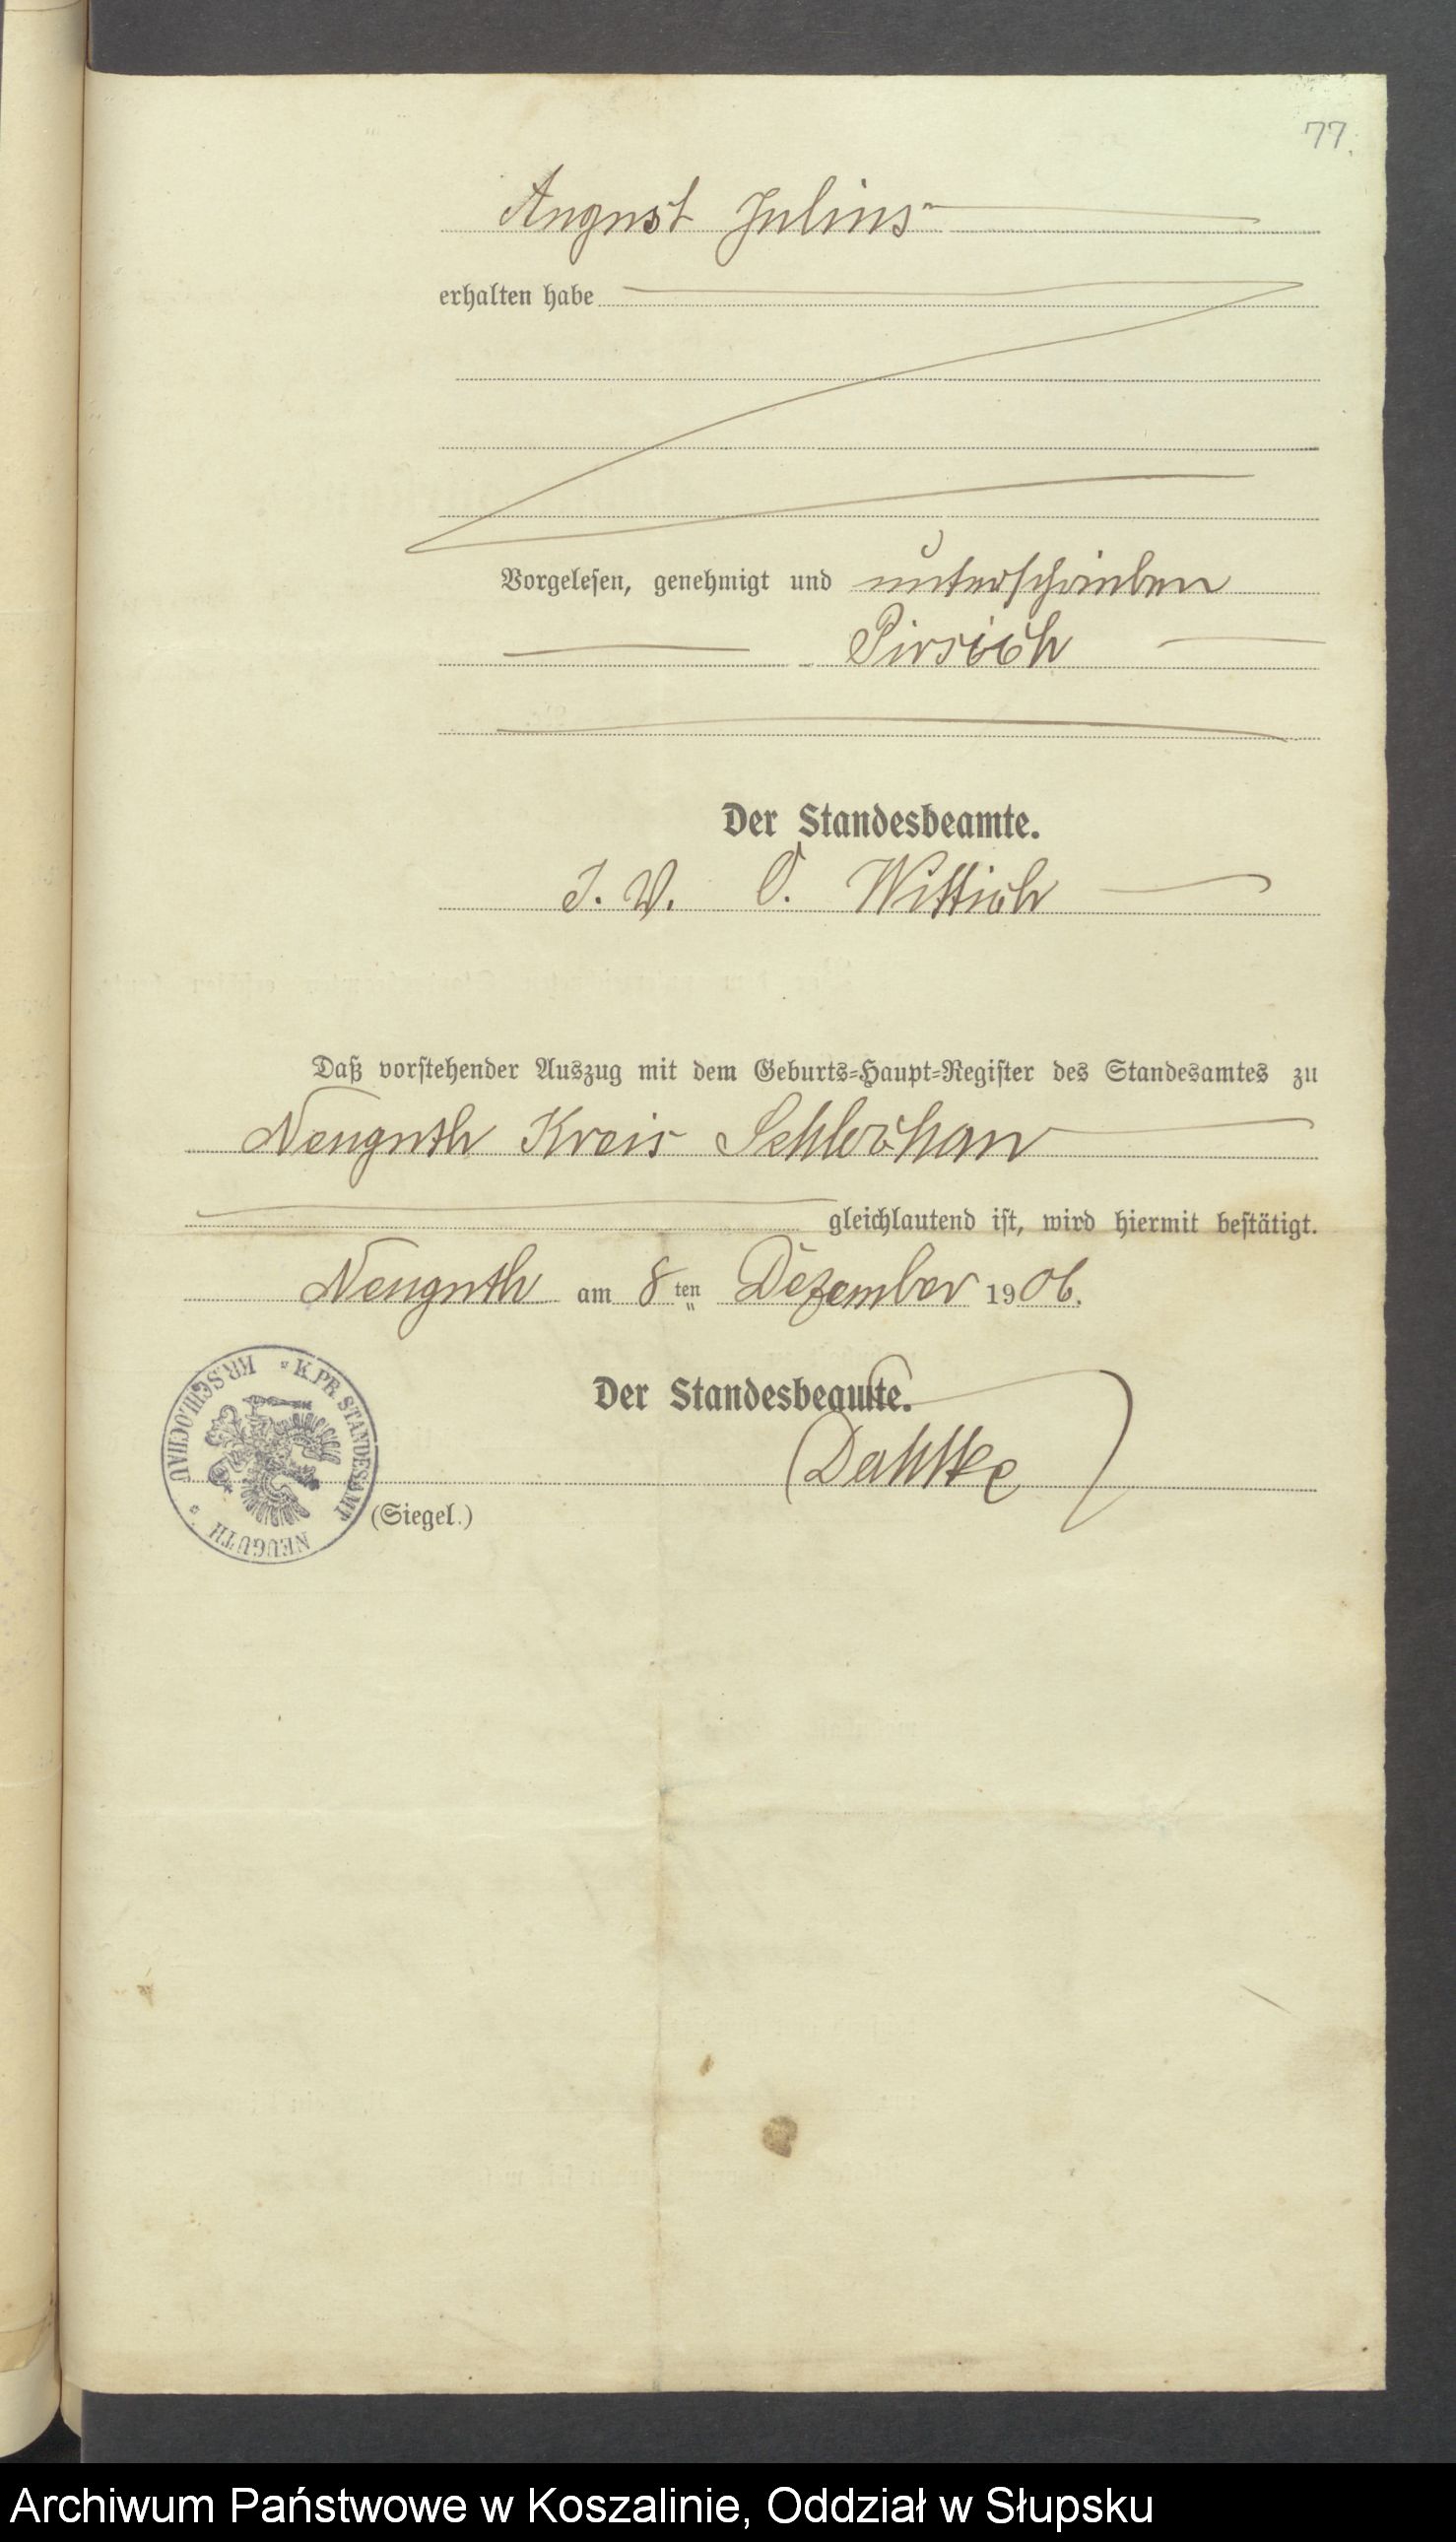 77.
August Julius
erhalten habe
Vorgelesen, genehmigt und unterschrieben
Pirsich
Der Standesbeamte.
I. V. O. Wittich
Daß vorstehender Auszug mit dem Geburts-Haupt-Register des Standesamtes zu
Neuguth Kreis Schlochau
gleichlautend ist, wird hiermit bestätigt.
Neuguth am 8 ten Dezember 1906.
Der Standesbeamte.
Dahlke
K. PR. STANDESAMT NEUGUTH KR. SCHLOCHAU
(Siegel.)
Archiwum Państwowe w Koszalinie, Oddział w Słupsku